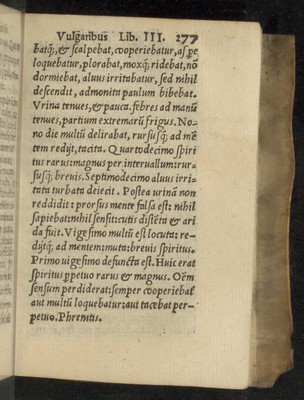 Vulgaribus Lib. III. 277
batq́;, & scalpebat, cooperiebatur, aspe
loquebatur, plorabat, moxq́; ridebat, nō
dormiebat, aluus irritabatur, sed nihil
descendit, admonita paulum bibebat.
Vrinæ tenues, & pauca. febres ad manū
tenues, partium extremarū frigus. No-
no die multū delirabat, rursusq́; ad mē
tem redijt, tacita. Quartodecimo spiri
tus rarus: magnus per interuallum: rur
susq́; breuis. Septimodecimo aluus irri
tata turbata deiecit. Postea urinā non
reddidit: prorsus mente falsa est: nihil
sapiebat: nihil sensit: cutis distēta & ari
da fuit. Vigesimo multū est locuta: re-
dijtq́; ad mentem: muta: breuis spiritus.
Primo uigesimo defuncta est. Huic erat
spiritus ꝑpetuo rarus & magnus. Oēm
sensum perdiderat: semper cooperiebat
aut multū loquebatur: aut tacebat per-
petuo. Phrenitis.